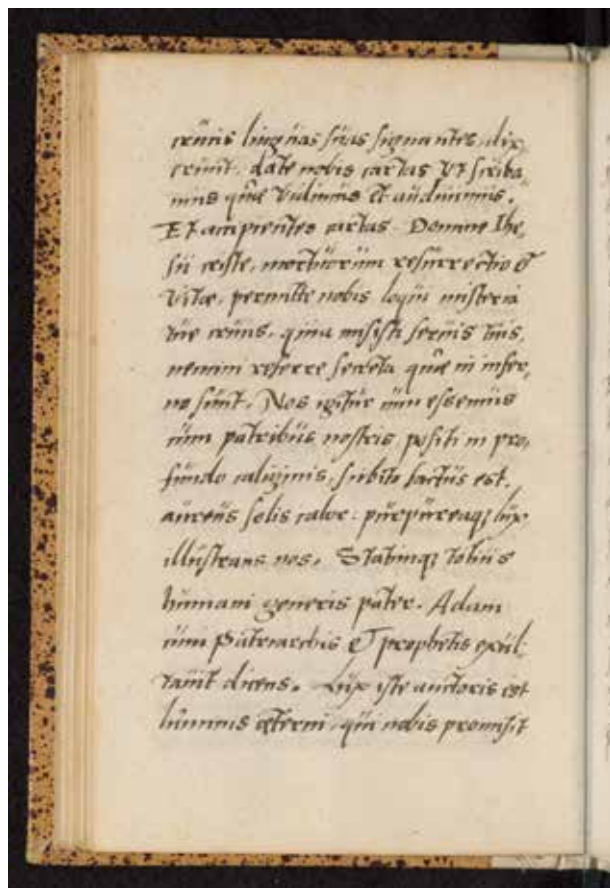 crucis linguas suas signantes, dix,
erunt. date nobis cartas vt scriba
mus quæ vidimus et audiuimus.
Et accipientes cartas. Domine Ihe,
su criste, mortuorum resurrectio &
vitæ, permitte nobis loqui misteria
tue crucis, quia misisti seruis tuis,
nemini referre secreta quæ in infer,
no sunt. Nos igitur cum essemus
cum patribus nostris positi in pro,
fundo caliginis, subito factus est,
aureus solis calor: purpureaq; lux
illustrans nos. Statimq; totius
humani generis pater. Adam
cum Patriarchis & prophetis exul
tauit dicens. Lux iste auctoris est
luminis æterni, qui nobis promisit